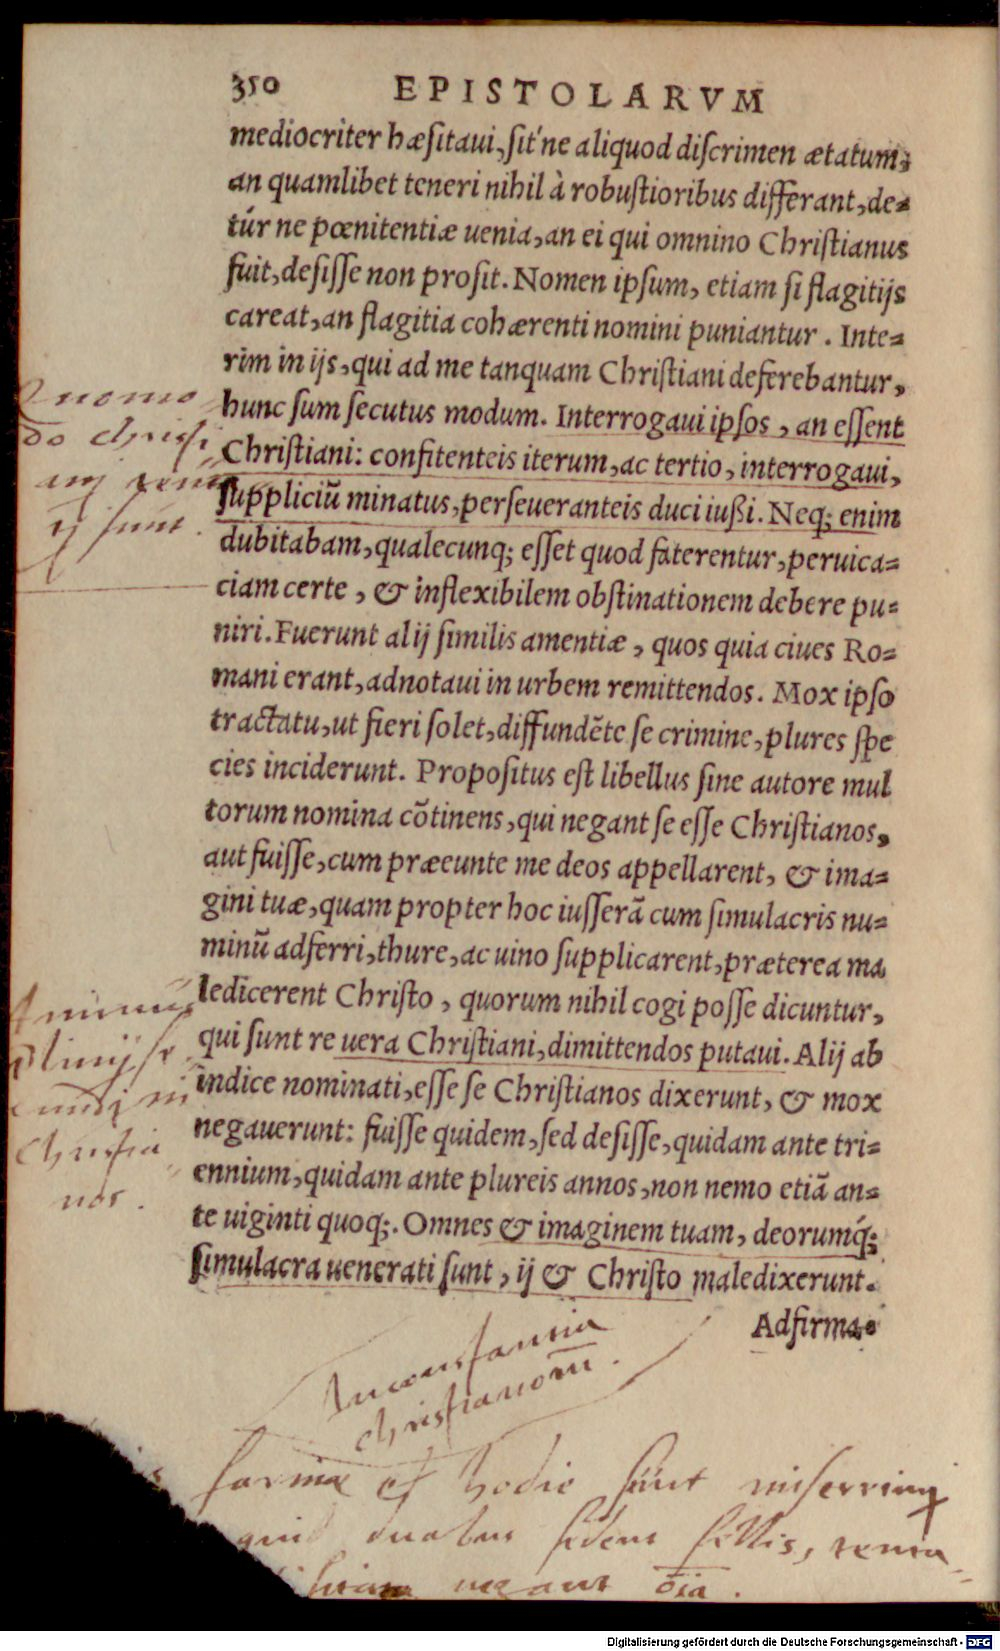 350 EPISTOLARVM
mediocriter hæsitaui, sít'ne aliquod discrimen ætatum,
an quamlibet teneri nihil à robustioribus differant, de=
túr ne pœnitentiæ uenia, an ei qui omnino Christianus
fuit, desisse non prosit. Nomen ipsum, etiam si flagitijs
careat, an flagitia cohærenti nomini puniantur. Inte=
rim in ijs, qui ad me tanquam Christiani deferebantur,
hunc sum secutus modum. Interrogaui ipsos, an essent
Christiani: confitenteis iterum, ac tertio, interrogaui,
suppliciũ minatus, perseueranteis duci iußi. Neq; enim
dubitabam, qualecunq; esset quod faterentur, peruica=
ciam certe, & inflexibilem obstinationem debere pu=
niri. Fuerunt alij similis amentiæ, quos quia ciues Ro=
mani erant, adnotaui in urbem remittendos. Mox ipso
tractatu, ut fieri solet, diffundẽte se crimine, plures spe
cies inciderunt. Propositus est libellus sine autore mul
torum nomina cõtinens, qui negant se esse Christianos,
aut fuisse, cum præeunte me deos appellarent, & ima=
gini tuæ, quam propter hoc iusserã cum simulacris nu=
minũ adferri, thure, ac uino supplicarent, præterea ma
ledicerent Christo, quorum nihil cogi posse dicuntur,
qui sunt re uera Christiani, dimittendos putaui. Alij ab
indice nominati, esse se Christianos dixerunt, & mox
negauerunt: fuisse quidem, sed desisse, quidam ante tri=
ennium, quidam ante plureis annos, non nemo etiã an=
te uiginti quoq;. Omnes & imaginem tuam, deorumq́;
simulacra uenerati sunt, ij & Christo maledixerunt.
Adfirma=
Quomo
do christi
ani
ij sunt.
Animus
Plinij
in
Christia
nos.
Inconstantia
christianorũ.
farinæ et hodie sunt miserrimi
qui duabus sedent sellis,
negant oĩa.
Digitalisierung gefördert durch die Deutsche Forschungsgemeinschaft - DFG